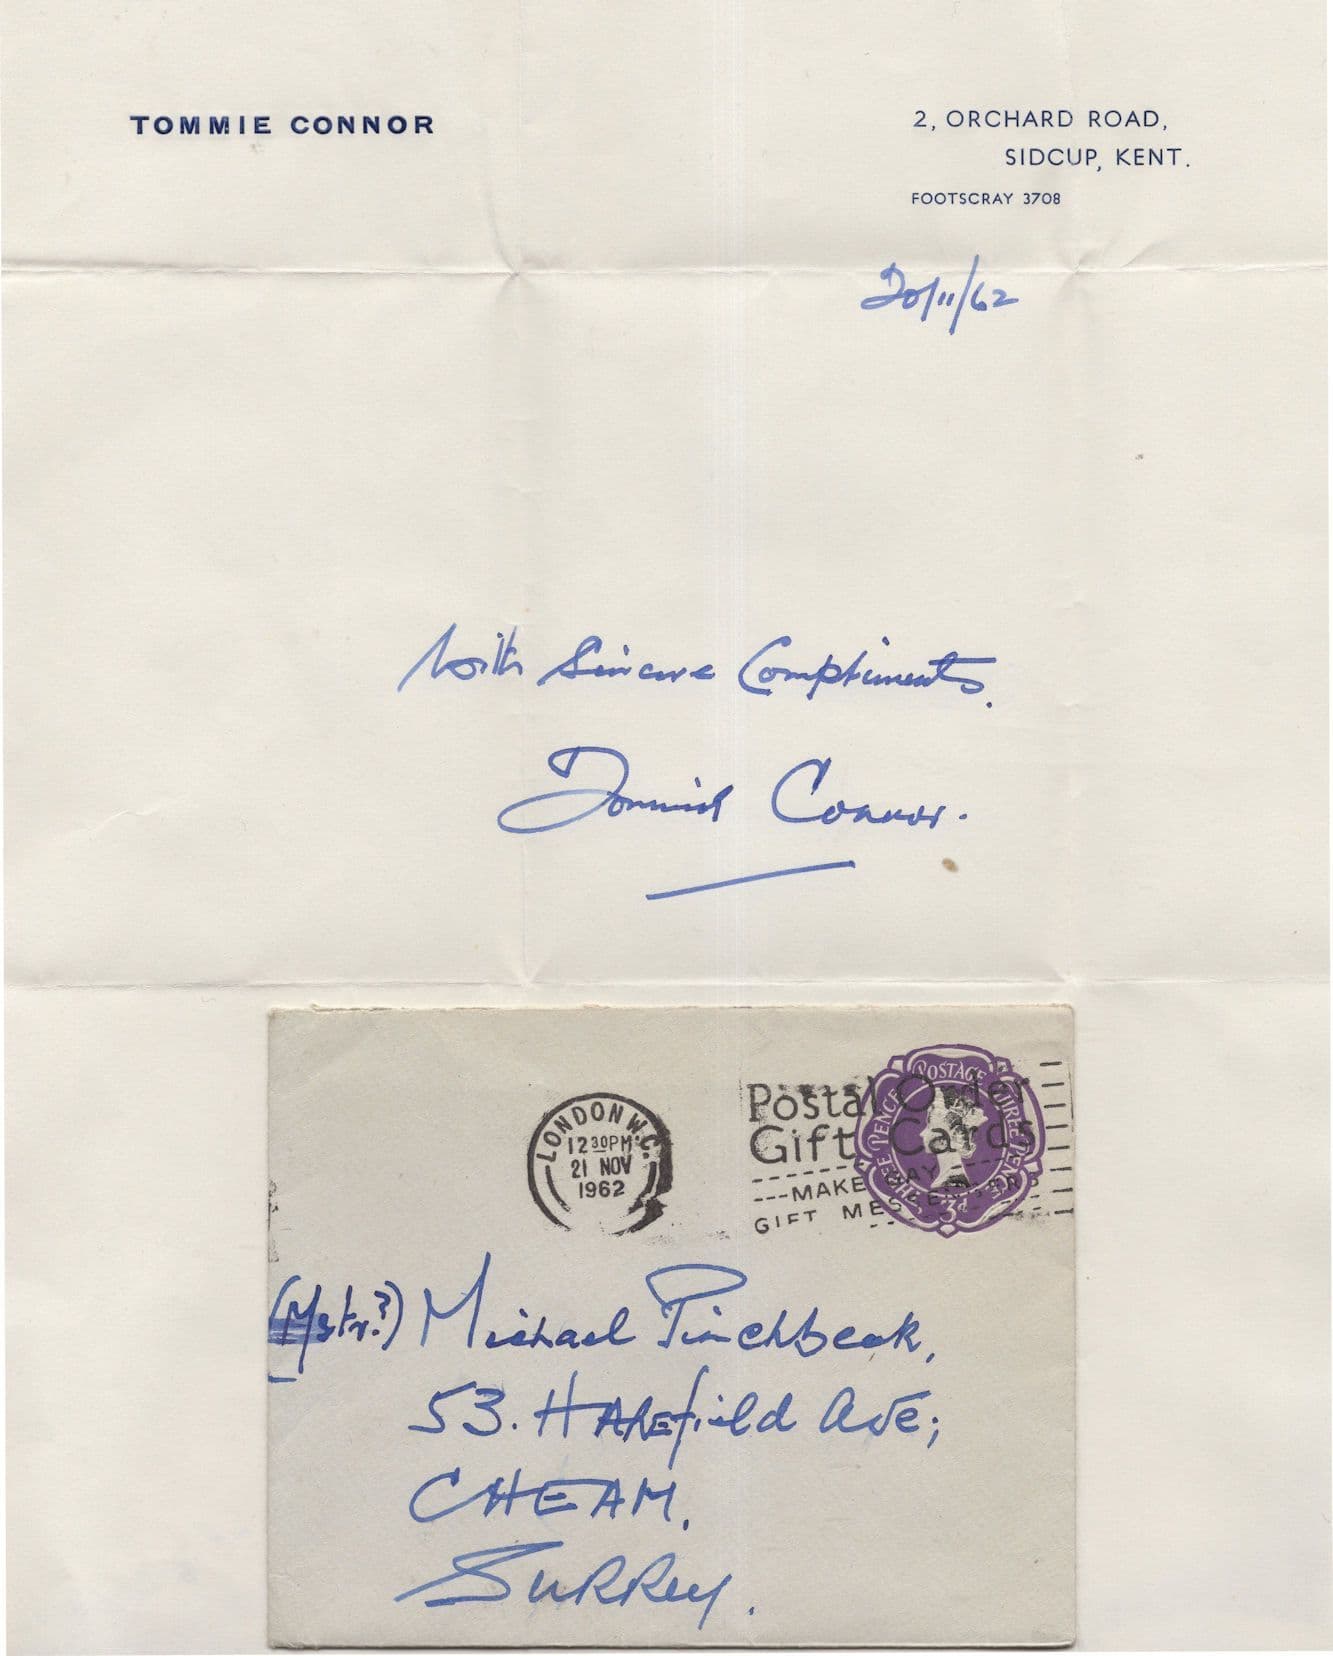 TOMMIE CONNOR
2, ORCHARD ROAD,
SIDCUP, KENT.
FOOTSCRAY 3708
20/11/62
With Sincere Compliments.
Tommie Connor.
LONDON W.C.
12 30 PM
21 NOV
1962
Postal Order
Gift Cards
MAKE GAY
GIFT MESSENGERS
POSTAGE
THREE PENCE
THREE PENCE
3d
(Mstr?) Michael Pinchbeck,
53. HAREfield Ave;
CHEAM.
SURREy.